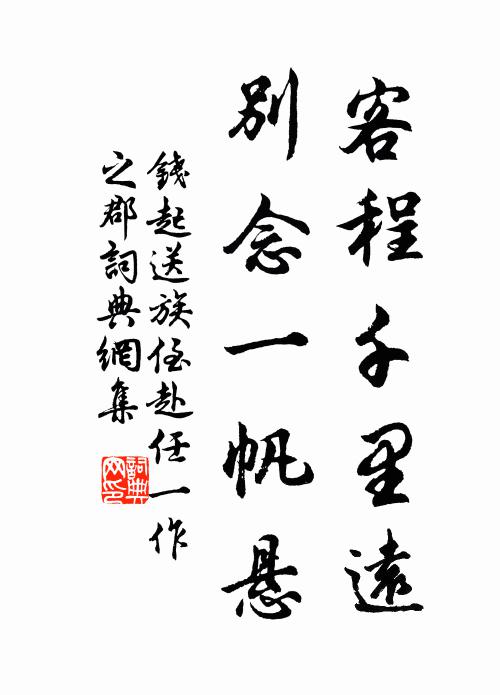 客程千里遠
別念一帆懸
錢起送族侄赴任一作
之郡詞典網集
詞典
网印